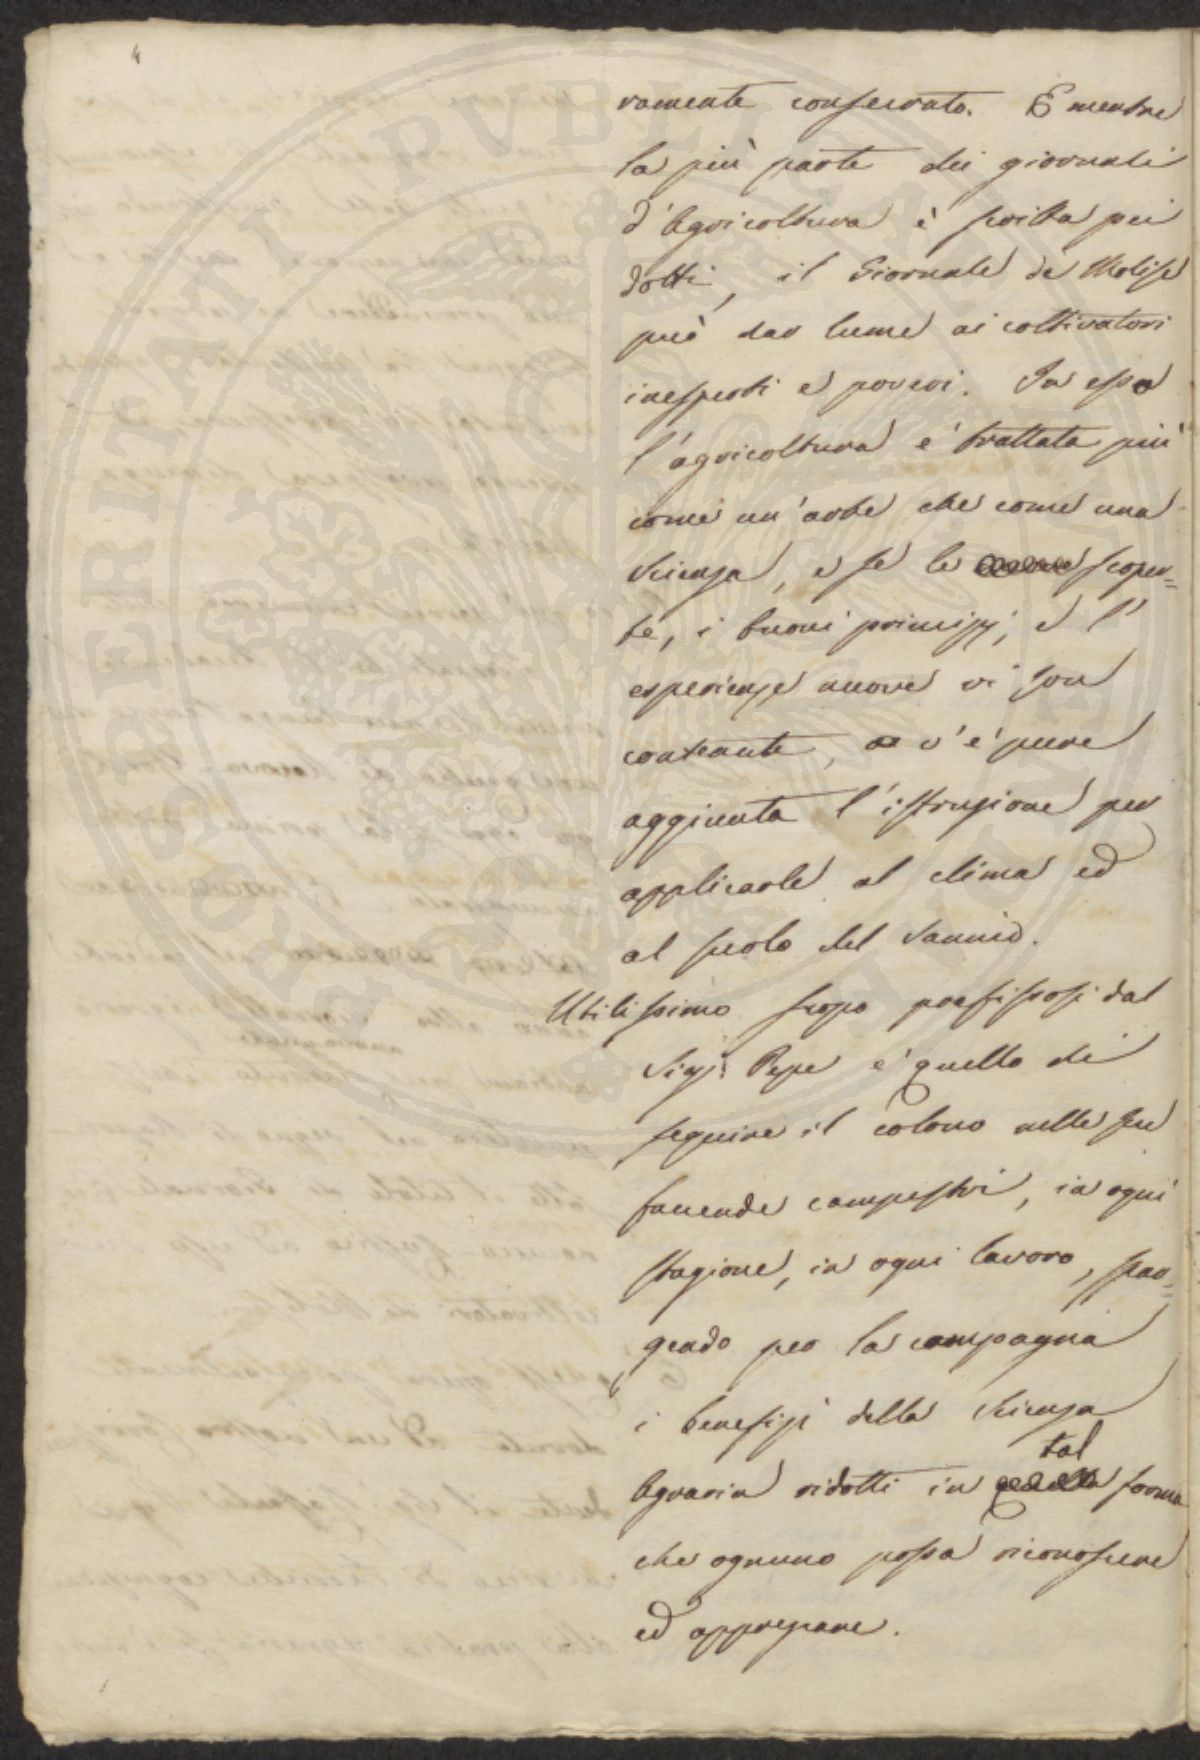 4
ramente conservato. E mentre
la più parte dei giornali
d'Agricoltura è scritta pei
dotti, il Giornale di Molise
può dar lume ai coltivatori
inesperti e poveri. In esso
l'agricoltura è trattata più
come un'arte che come una
Scienza, e se le scoper=
te, i buoni principj, e l'
esperienze nuove vi son
contenute, v'è pure
aggiunta l'istruzione per
applicarle al clima ed
al suolo del Sannio.
Utilissimo scopo prefissosi dal
Sig. Pepe è quello di
seguire il colono nelle sue
faccende campestri, in ogni
stagione, in ogni lavoro, spar=
gendo per la campagna
i benefizj della Scienza
tal
Agraria ridotti in forma
che ognuno possa riconoscere
ed apprezzare.
PROSPERITATI PVBLICAE